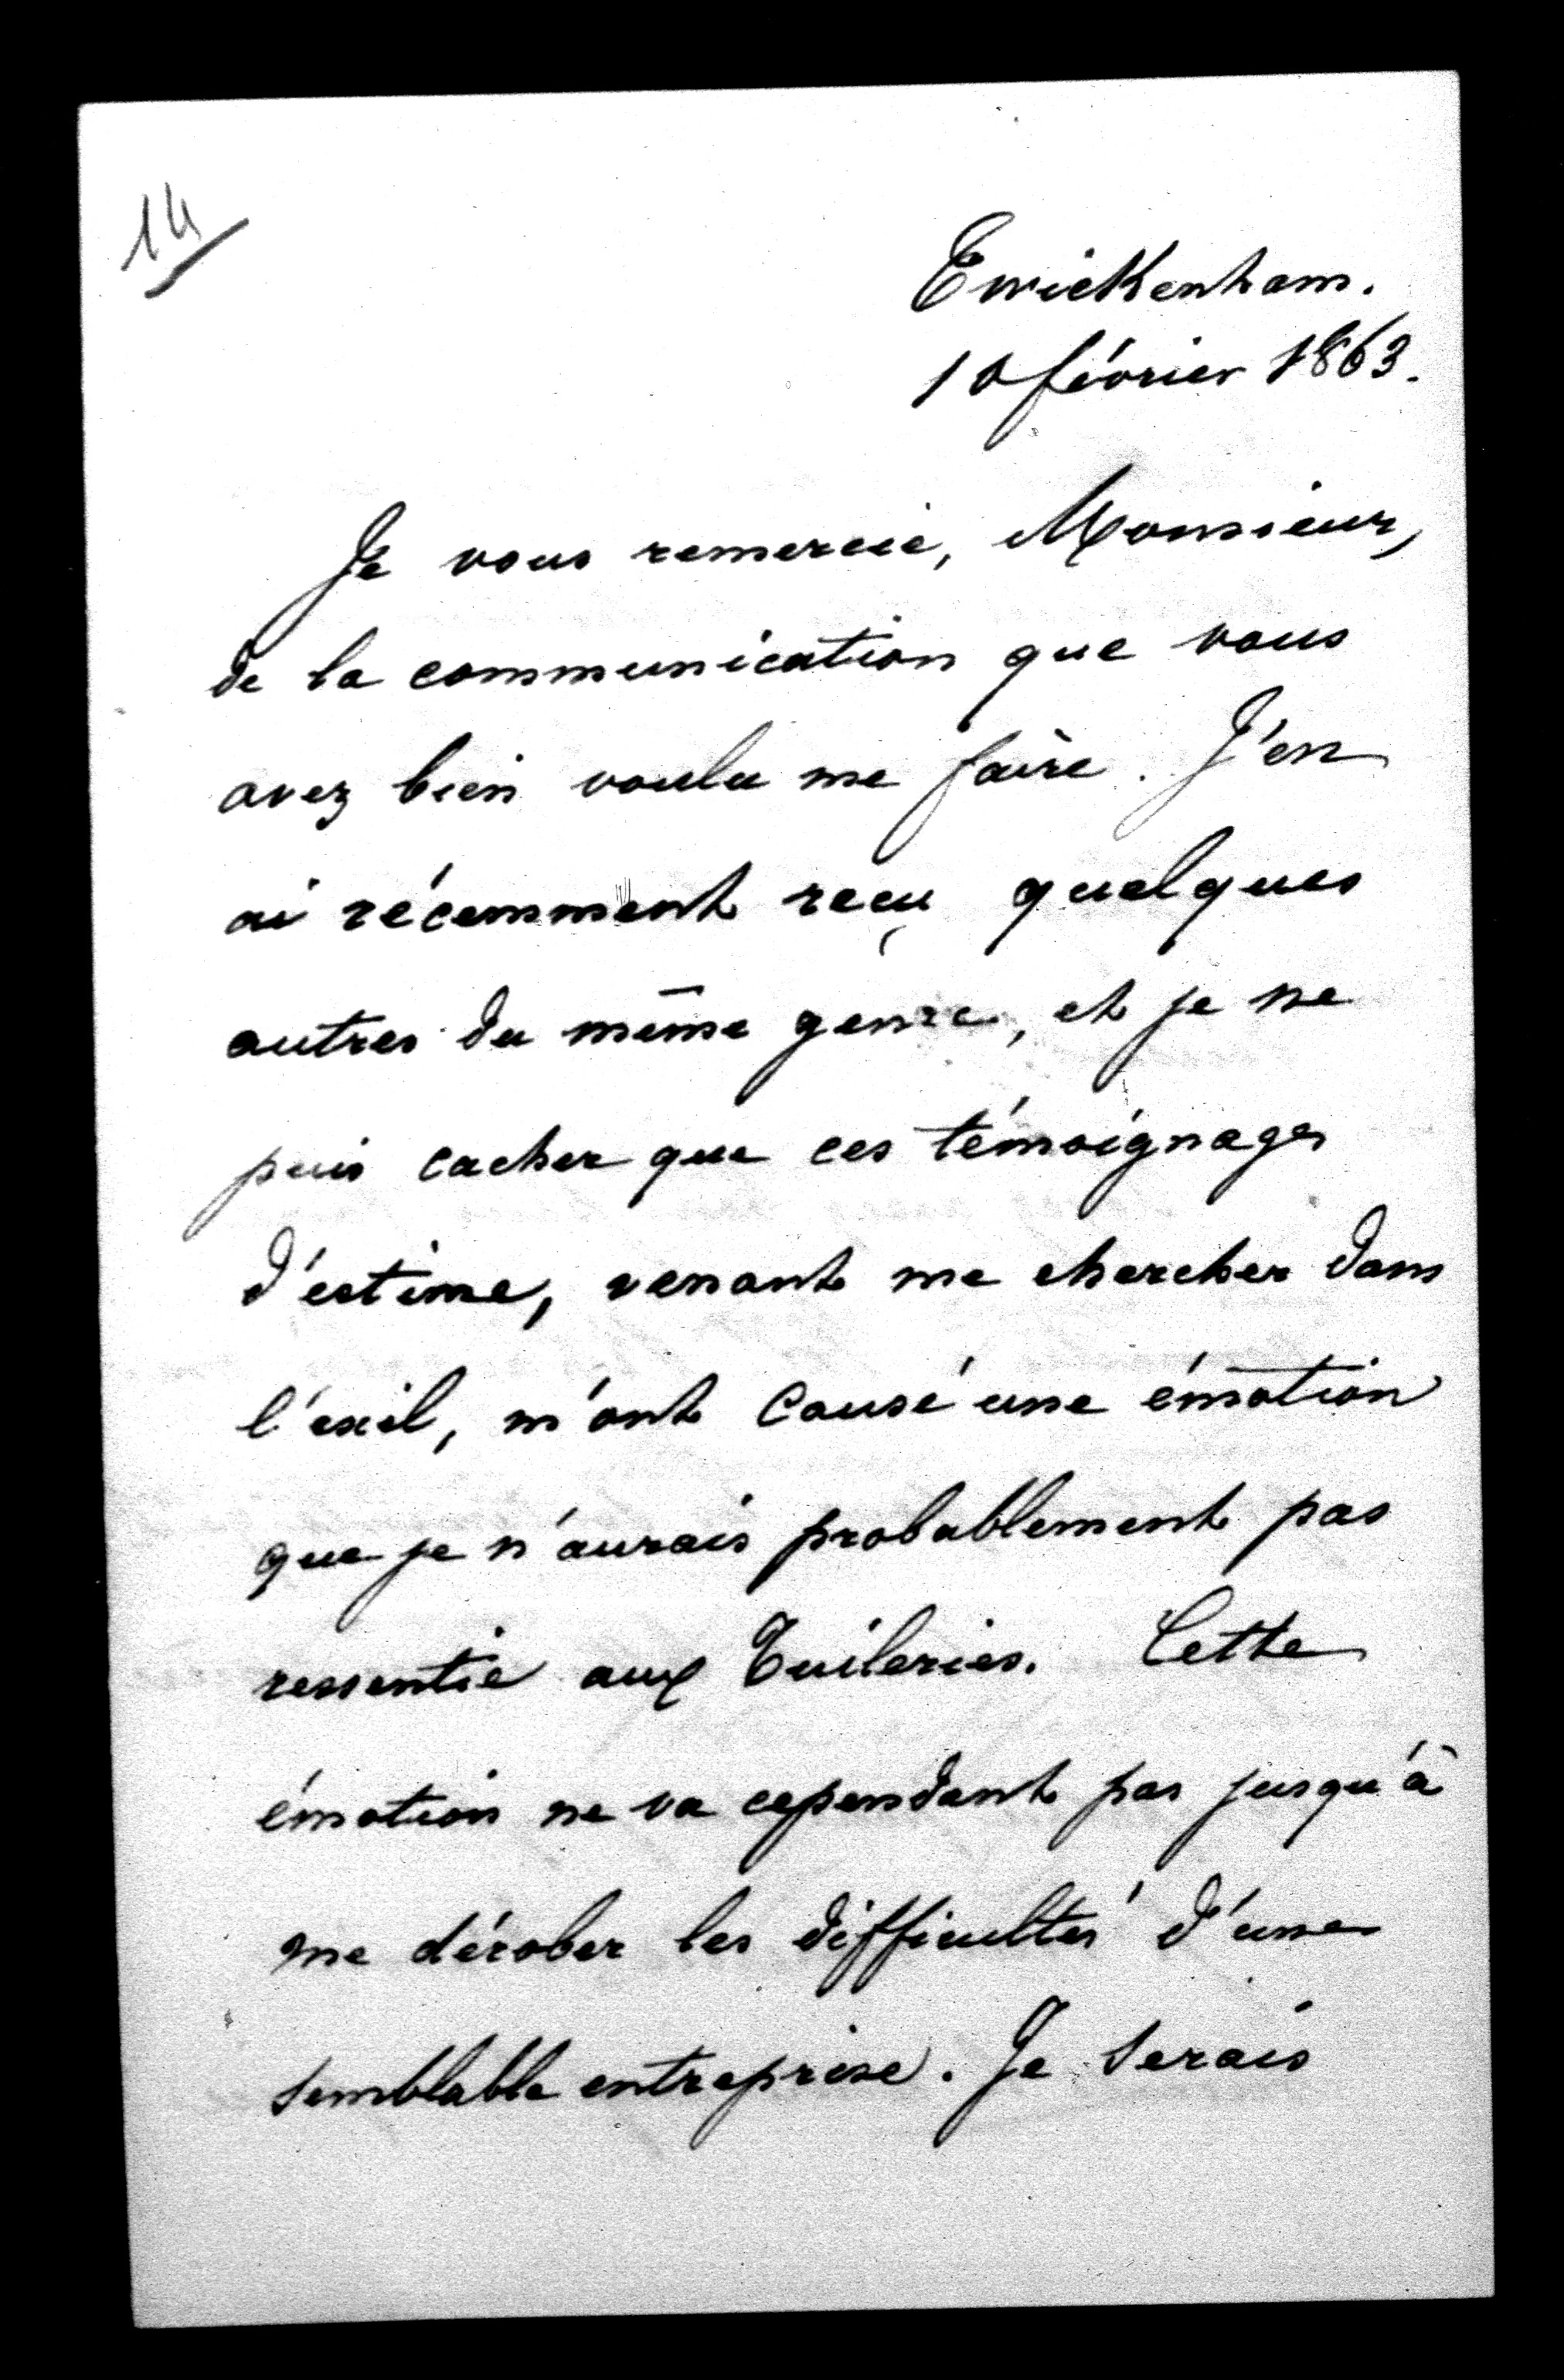 14
Twickenham.
10 février 1863.
Je vous remercie, Monsieur,
de la communication que vous
avez bien voulu me faire. J'en
ai récemment reçu quelques
autres du même genre, et je ne
puis cacher que ces témoignages
d'estime, venant me chercher dans
l'exil, m'ont causé une émotion
que je n'aurais probablement pas
ressentie aux Tuileries. Cette
émotion ne va cependant pas jusqu'à
me dérober les difficultés d'une
semblable entreprise. Je serais